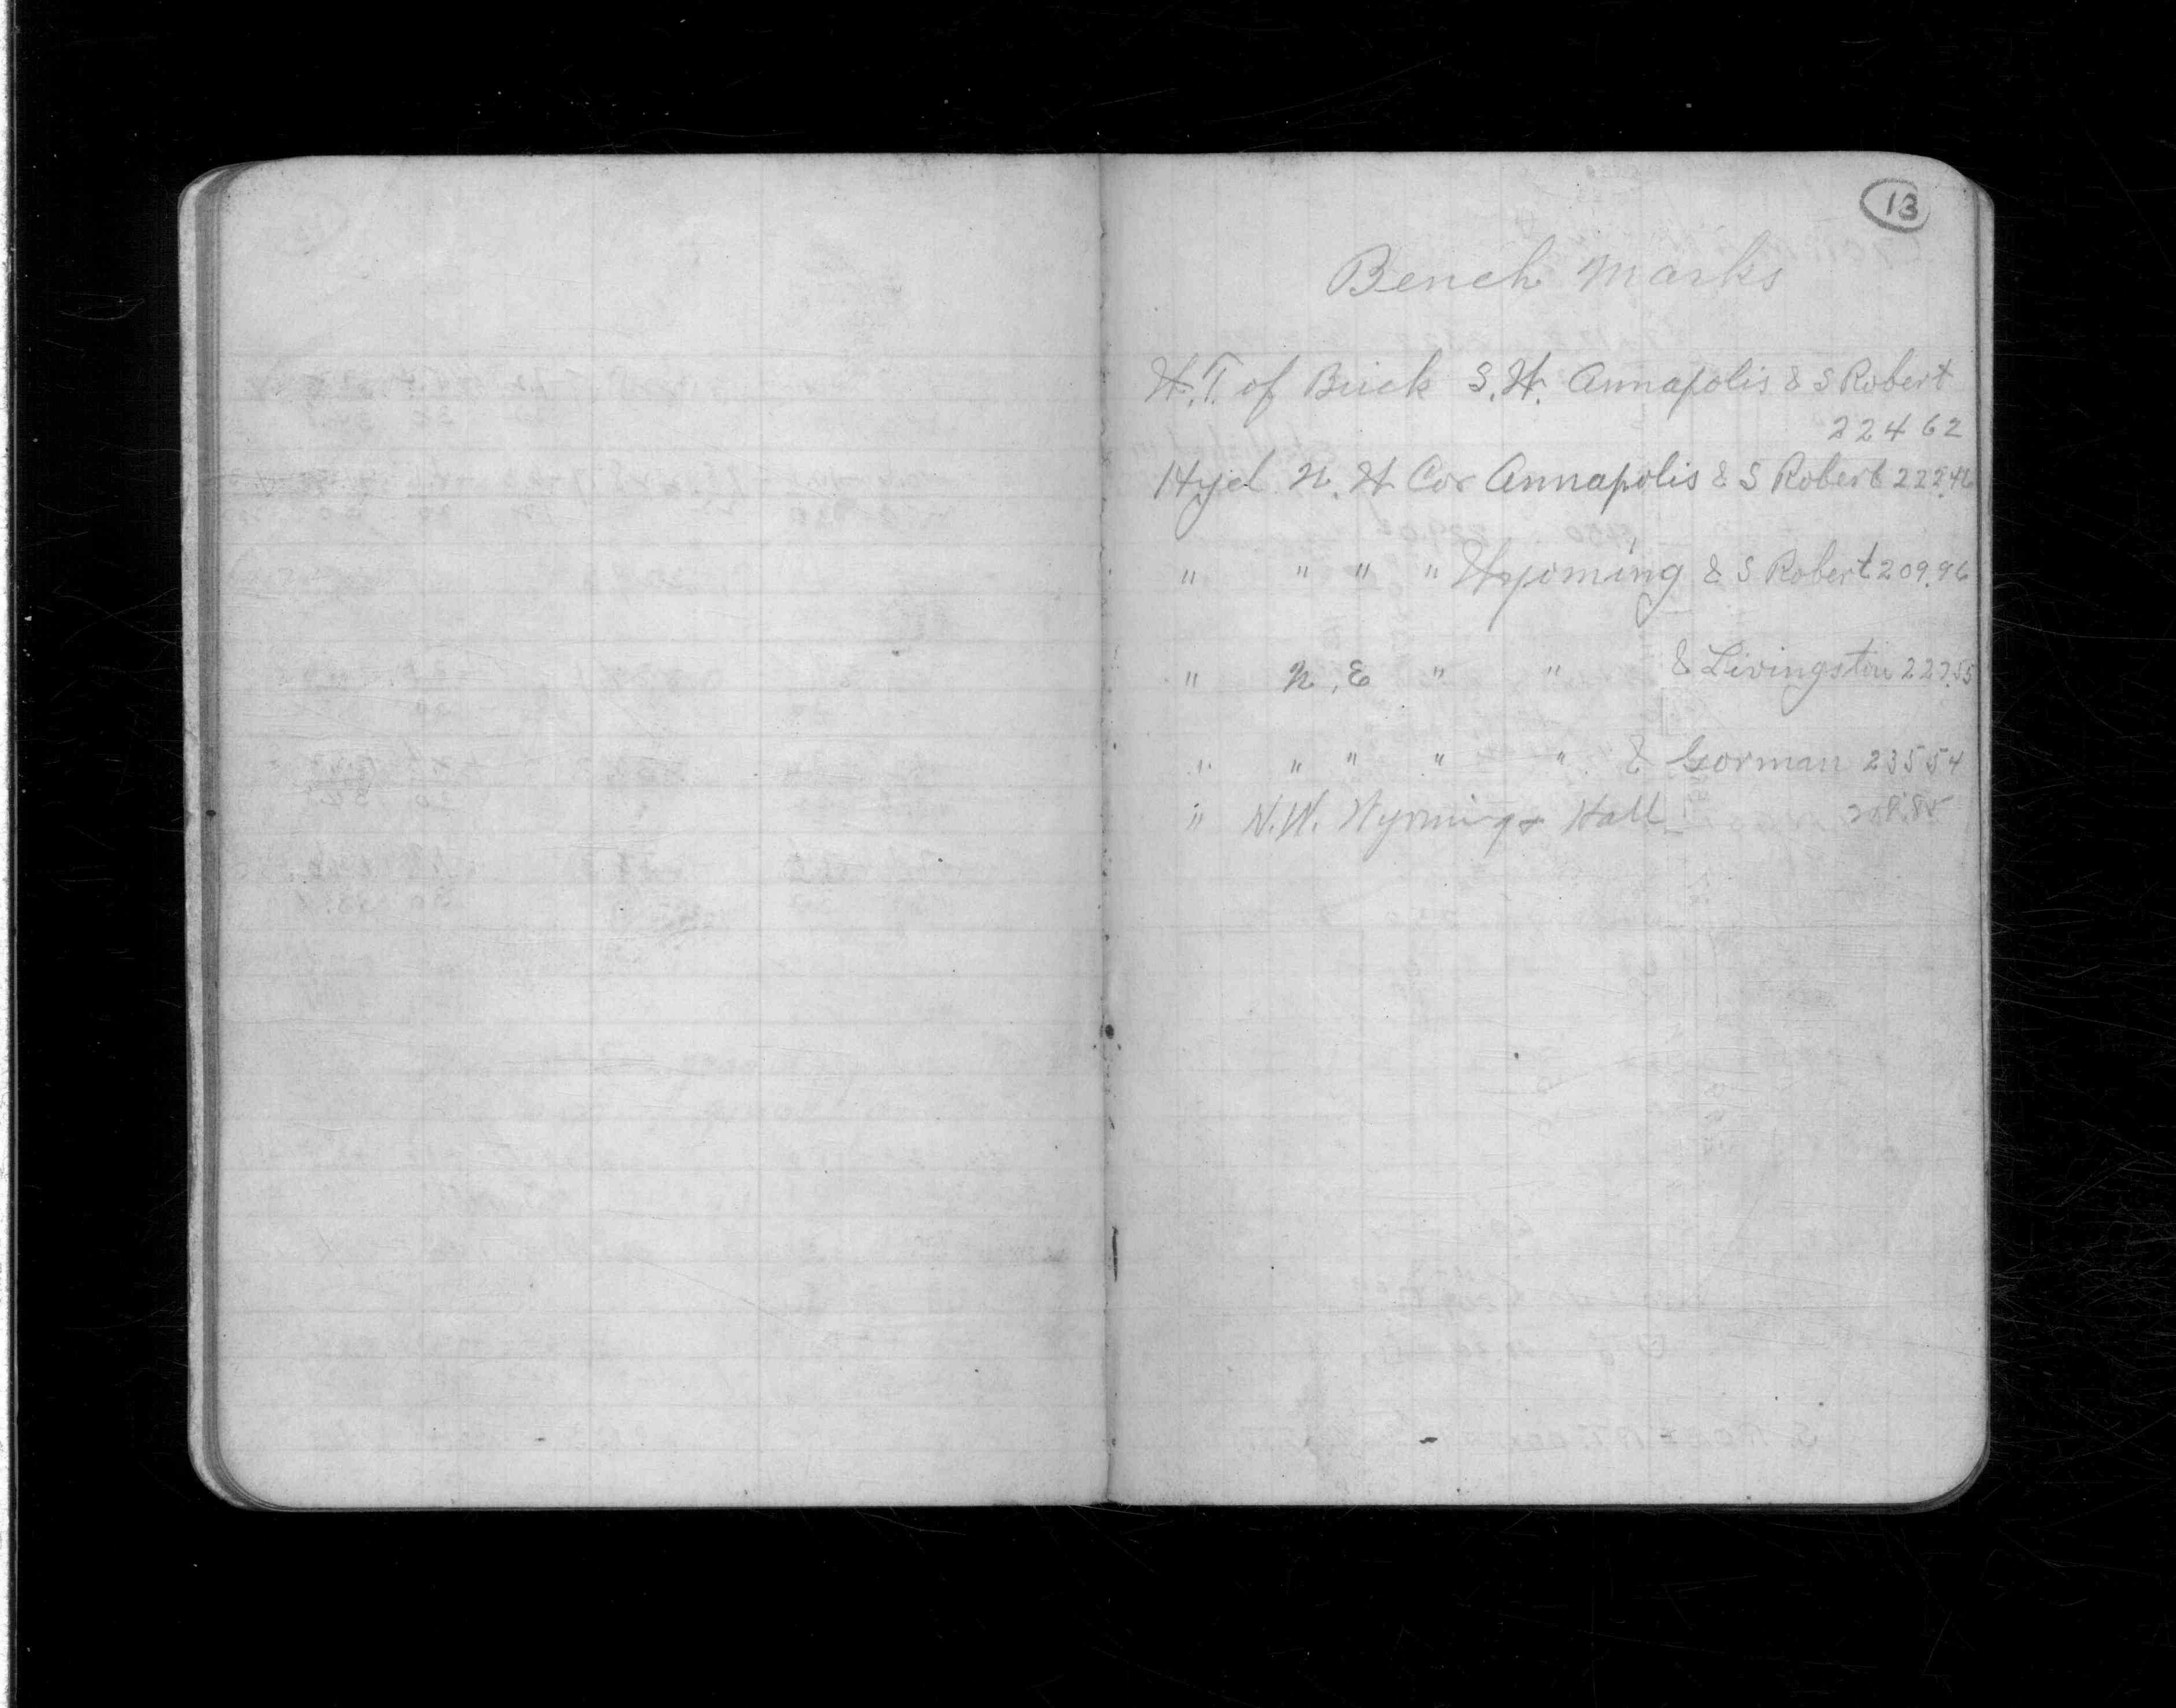 13
Bench Marks
W.T. of Brick S.W. Annapolis & S Robert
224 62
Hyd. N.W Cor Annapolis & S Robert 222.46
" " " " Wyoming & S Robert 209.96
" N.E " " & Livingston 227.55
" " " " " & Gorman 235 54
" N.W. Wyoming & Hall